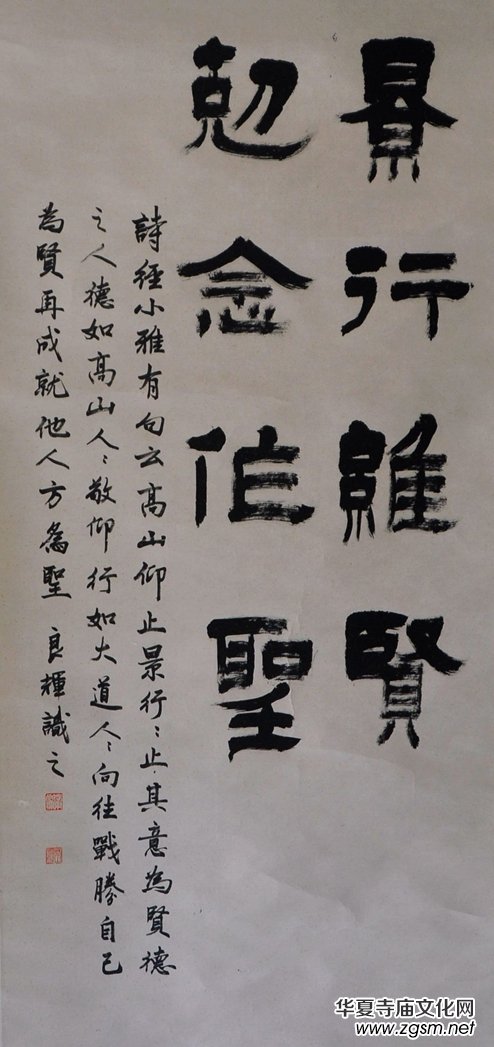 景行維賢
剋念作聖
詩經小雅有句云高山仰止景行〻止其意為賢德
之人德如高山人〻敬仰行如大道人〻向往戰勝自己
為賢再成就他人方為聖 良輝識之
华夏寺庙文化网
www.zgsm.net